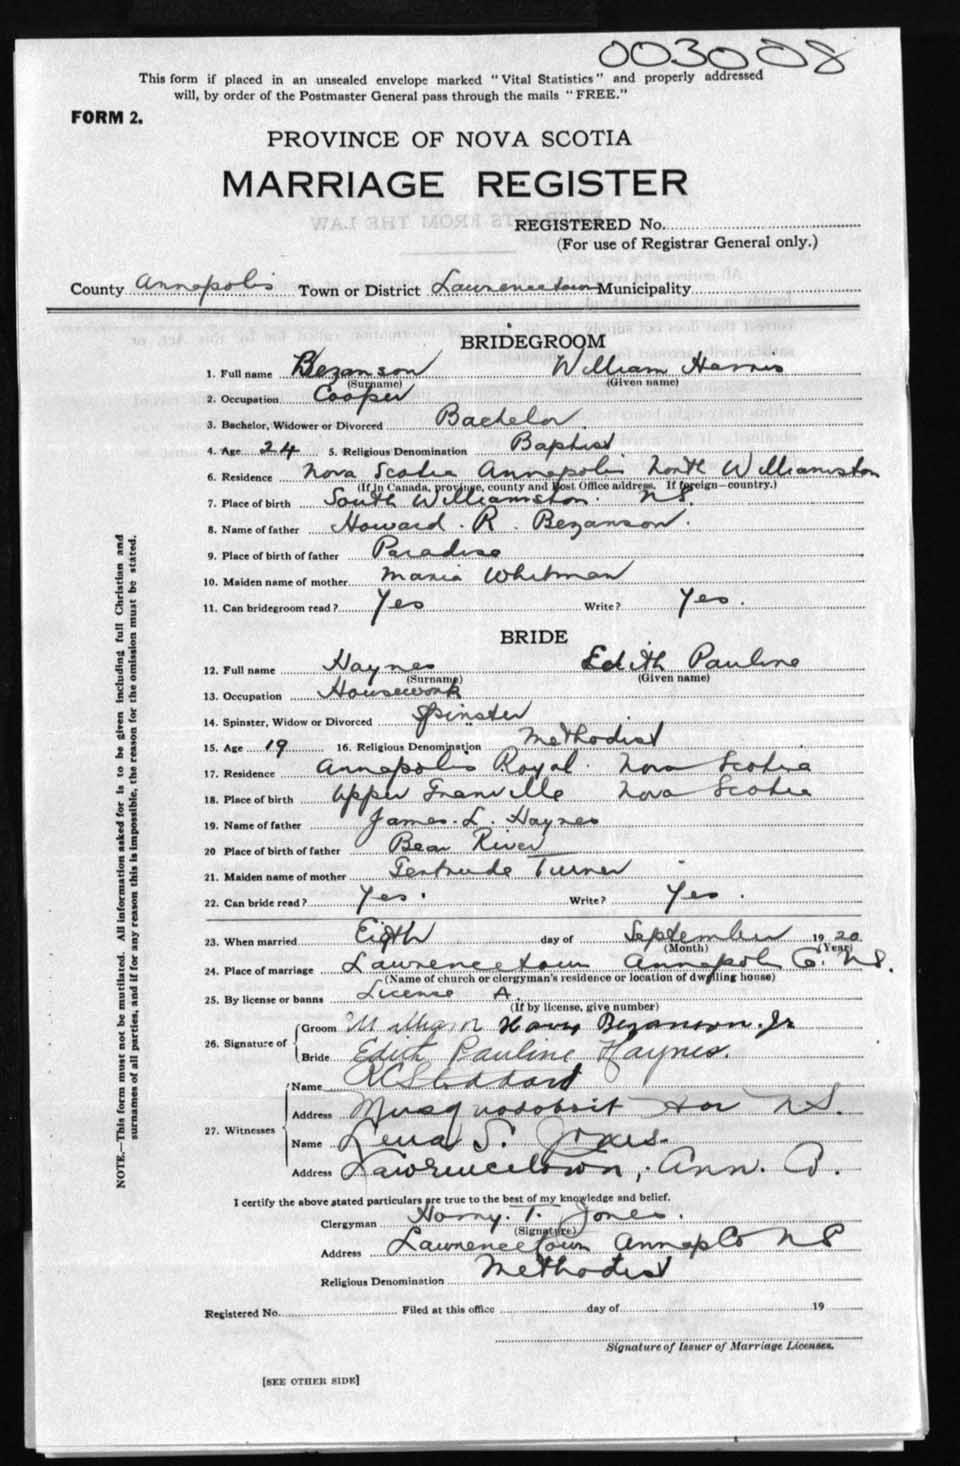 003008
This form if placed in an unsealed envelope marked "Vital Statistics" and properly addressed
will, by order of the Postmaster General pass through the mails "FREE."
FORM 2.
PROVINCE OF NOVA SCOTIA
MARRIAGE REGISTER
REGISTERED No.
(For use of Registrar General only.)
County Annapolis Town or District Lawrencetown Municipality
BRIDEGROOM
1. Full name Bezanson William Harris
(Surname) (Given name)
2. Occupation Cooper
3. Bachelor, Widower or Divorced Bachelor
4. Age 24 5. Religious Denomination Baptist
6. Residence Nova Scotia Annapolis North Williamston
(If in Canada, province, county and Post Office address. If foreign—country.)
7. Place of birth South Williamston. N.S.
8. Name of father Howard. R. Bezanson.
9. Place of birth of father Paradise
10. Maiden name of mother Maria Whitman
11. Can bridegroom read? Yes Write? Yes.
BRIDE
12. Full name Haynes Edith Pauline
(Surname) (Given name)
13. Occupation Housework
14. Spinster, Widow or Divorced Spinster
15. Age 19 16. Religious Denomination Methodist
17. Residence Annapolis Royal. Nova Scotia
18. Place of birth Upper Granville Nova Scotia
19. Name of father James. L. Haynes
20 Place of birth of father Bear River
21. Maiden name of mother Gertrude Turner
22. Can bride read? Yes. Write? Yes.
23. When married Eigth day of September 1920
(Month) (Year)
24. Place of marriage Lawrencetown Annapolis Co. N.S.
(Name of church or clergyman's residence or location of dwelling house)
25. By license or banns License A.
(If by license, give number)
26. Signature of Groom William Harris Bezanson. Jr
Bride Edith Pauline Haynes.
27. Witnesses Name
Address Musquodoboit Har N.S.
Name Lena S.
Address Lawrencetown, Ann. Co.
I certify the above stated particulars are true to the best of my knowledge and belief.
Clergyman Harry. T. Jones.
(Signature)
Address Lawrencetown Annap Co N S
Religious Denomination Methodist
Registered No. Filed at this office day of 19
Signature of Issuer of Marriage Licenses.
[SEE OTHER SIDE]
NOTE.—This form must not be mutilated. All information asked for is to be given including full Christian and
surnames of all parties, and if for any reason this is impossible, the reason for the omission must be stated.